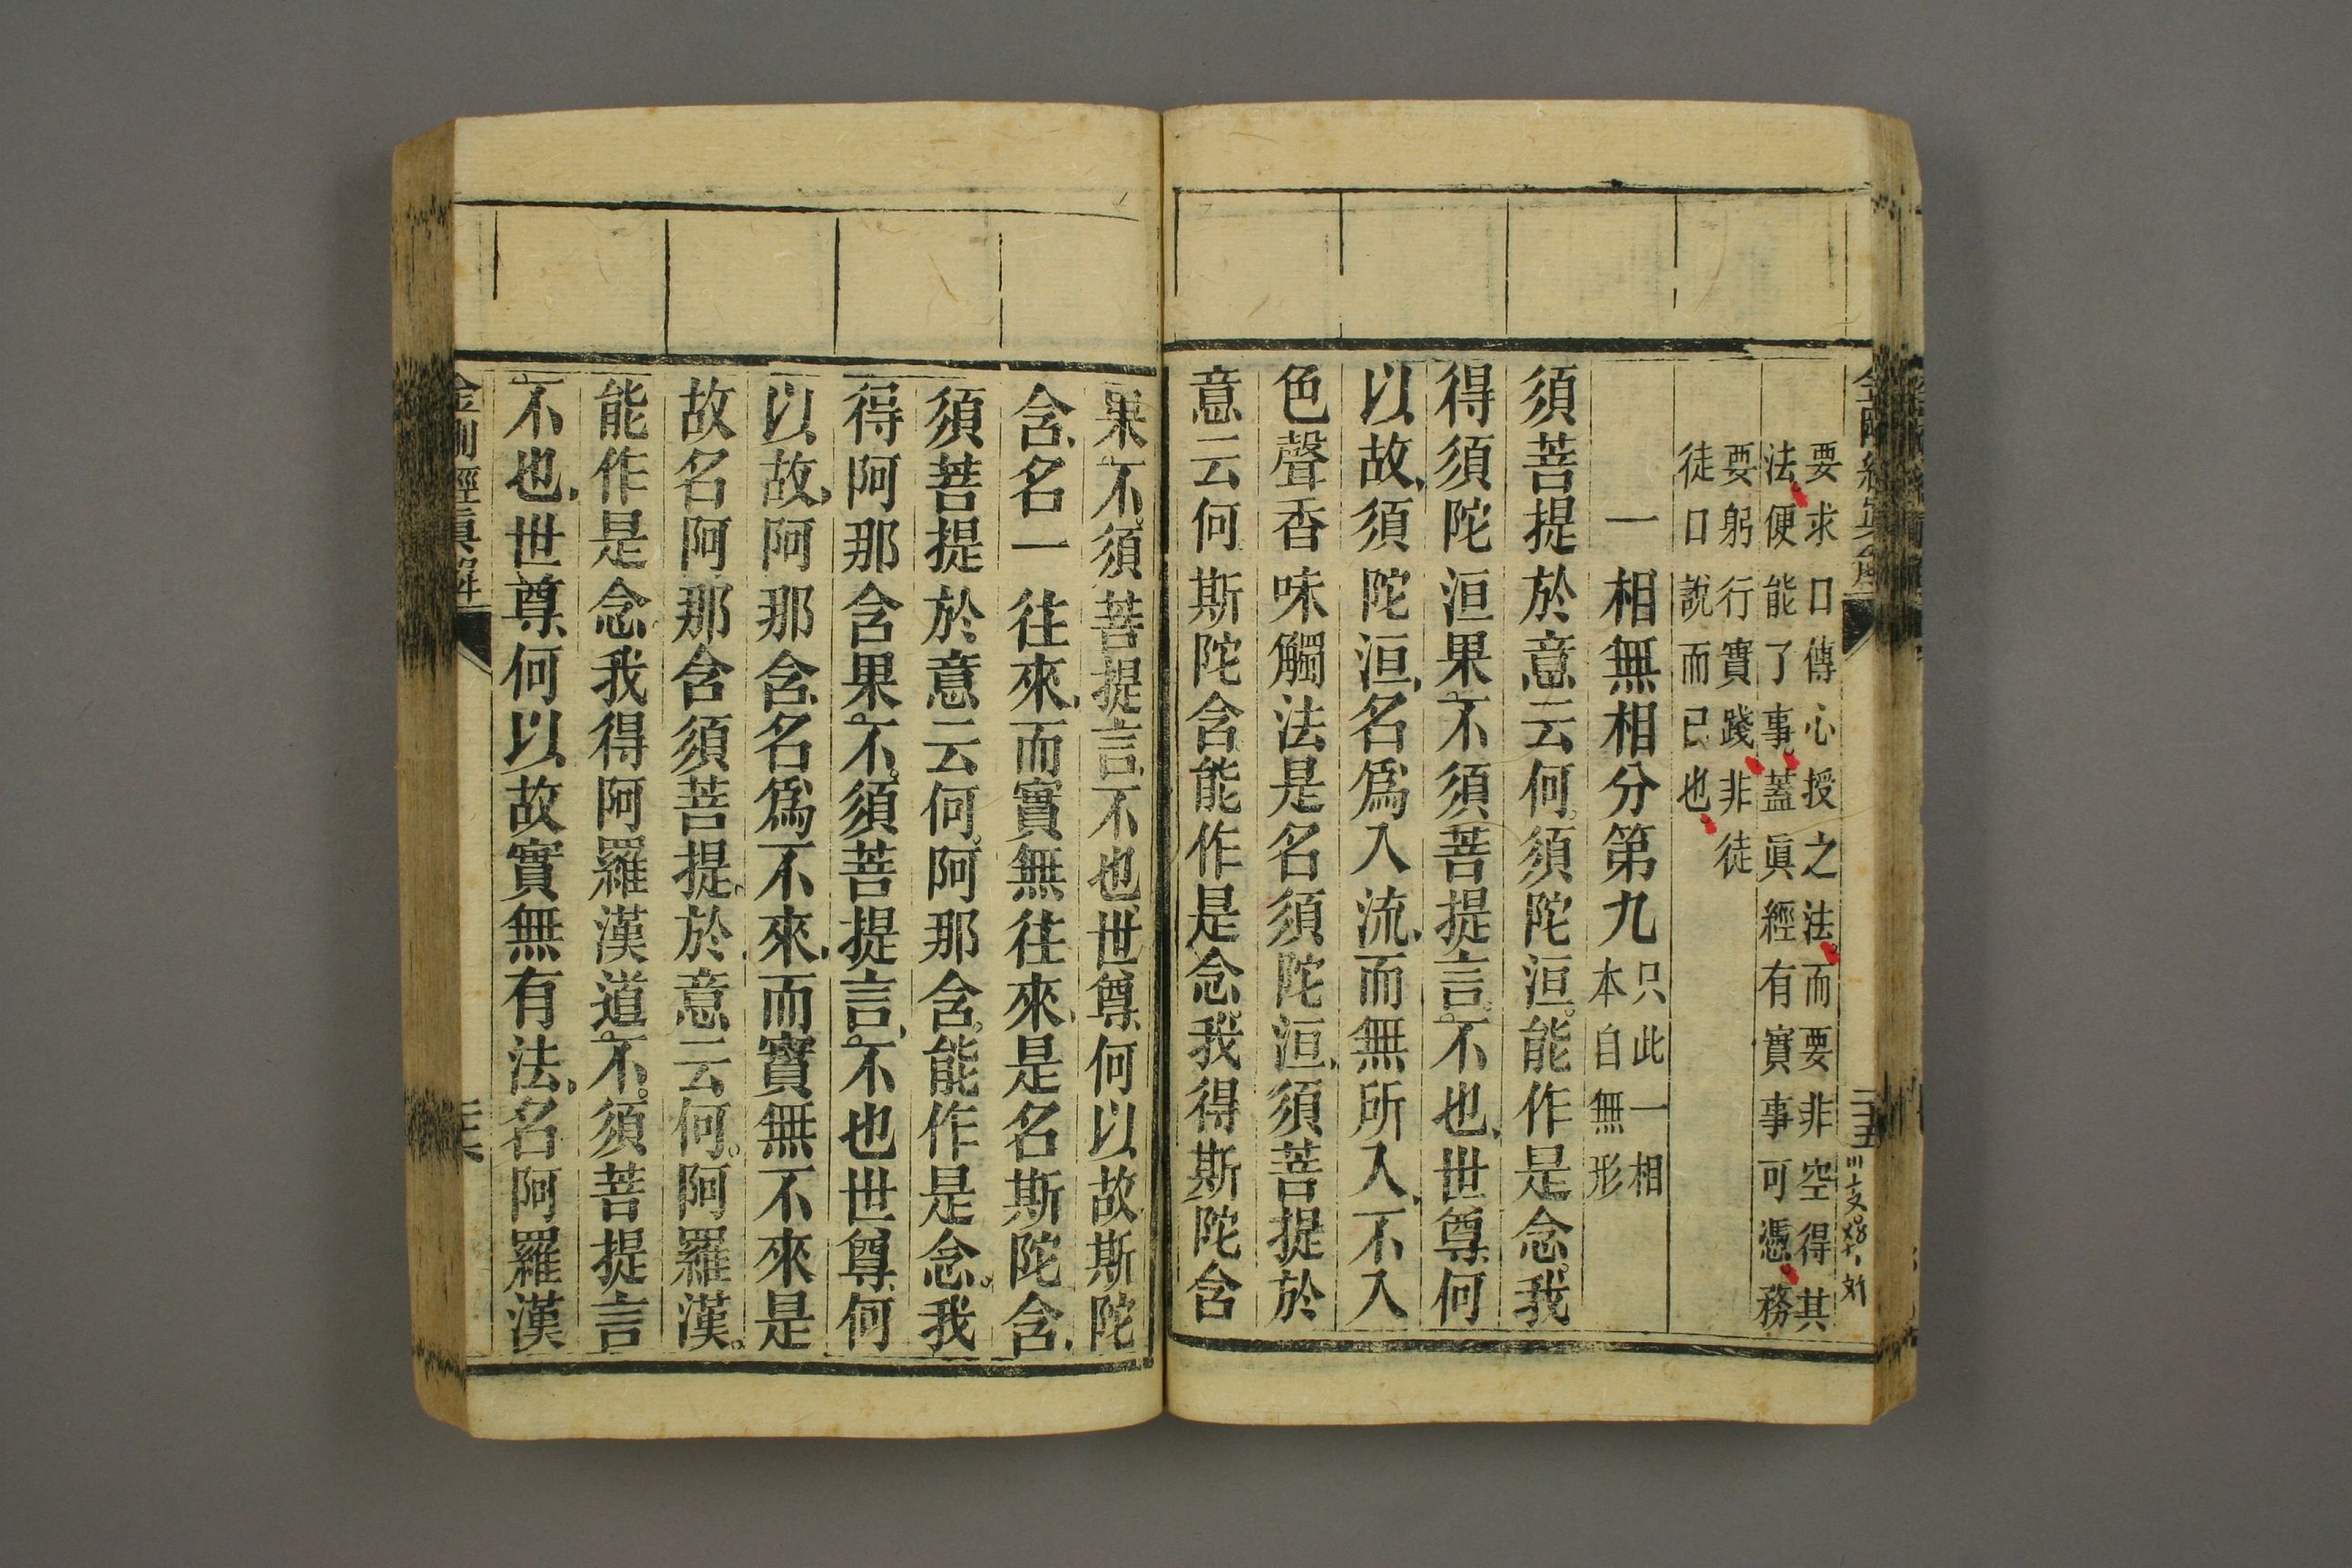 金剛經真解
二十五
要求口傳心授之法。而要非空得其
法便能了事蓋眞經有實事可憑務
要躬行實踐非徒
徒口說而已也
一相無相分第九
只此一相
本自無形
須菩提於意云何。須陀洹。能作是念。我
得須陀洹果不須菩提言。不也、世尊何
以故、須陀洹、名爲入流、而無所入、不入
色聲香味觸法是名須陀洹、須菩提於
意云何斯陀含能作是念。我得斯陀含
果不。須菩提言、不也、世尊、何以故、斯陀
含、名一往來、而實無往來、是名斯陀含、
須菩提於意云何。阿那含。能作是念。我
得阿那含果不。須菩提言、不也世尊、何
以故、阿那含、名爲不來、而實無不來是
故名阿那含須菩提。於意云何。阿羅漢。
能作是念我得阿羅漢道不。須菩提言
不也、世尊、何以故實無有法、名阿羅漢
金剛經真解
二十六